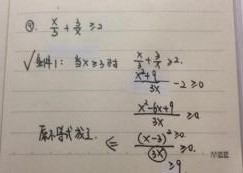 ④. x/3 + 3/x ≥ 2
√条件1: 当x≥3时 x/3 + 3/x ≥ 2.
(x²+9)/3x - 2 ≥ 0
(x²-6x+9)/3x ≥ 0
原不等式成立. ⇐ (x-3)²≥0/(3x) ≥ 0.
≥9